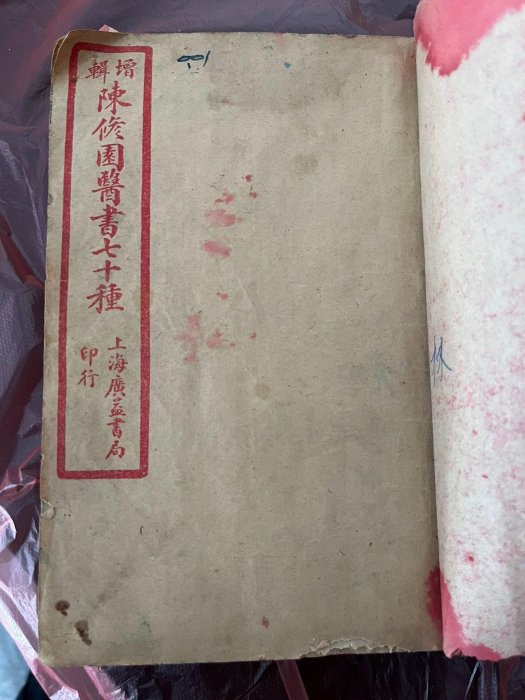 增輯
陳修園醫書七十種
上海廣益書局
印行
林